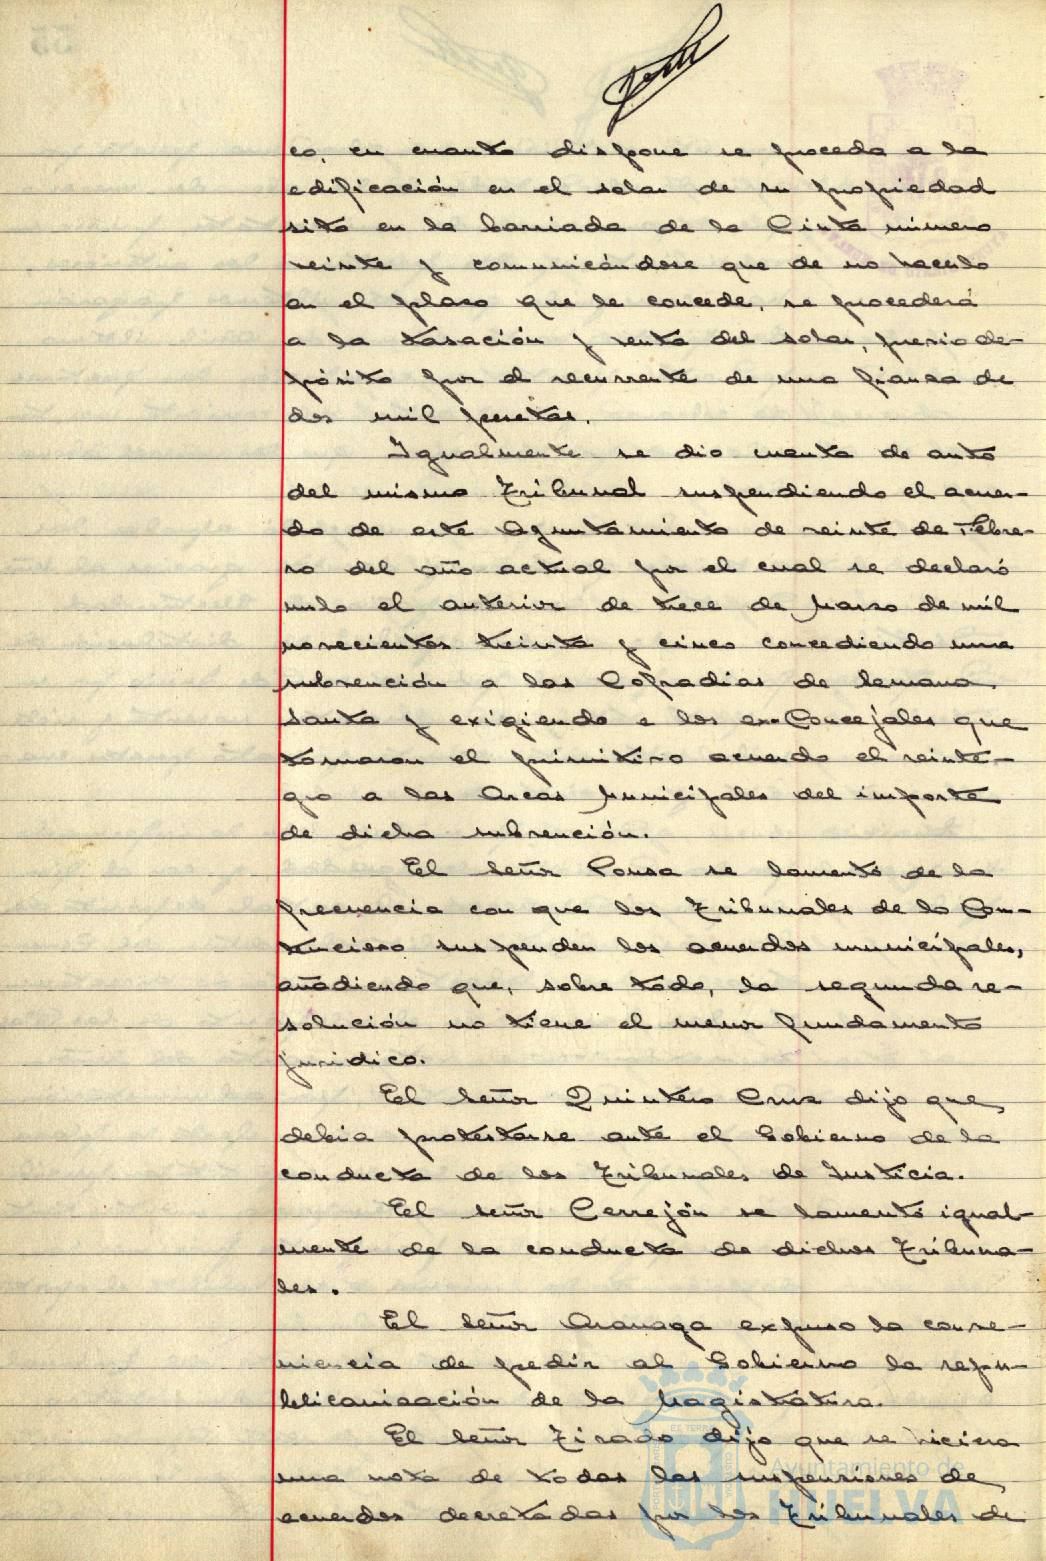 co, en cuanto dispone se proceda a la
edificación en el solar de su propiedad
sito en la barriada de la Cinta número
veinte y comunicándose que de no hacerlo
en el plazo que se concede, se procederá
a la tasación y venta del solar, previo de-
pósito por el recurrente de una fianza de
dos mil pesetas.
Igualmente se dio cuenta de auto
del mismo Tribunal suspendiendo el acuer-
do de este Ayuntamiento de veinte de Febre-
ro del año actual por el cual se declaró
nulo el anterior de trece de Marzo de mil
novecientos treinta y cinco concediendo una
subvención a las Cofradias de Semana
Santa y exigiendo a los ex-Concejales que
tomaron el primitivo acuerdo el reinte-
gro a las Arcas Municipales del importe
de dicha subvención.
El señor Ponsa se lamentó de la
frecuencia con que los Tribunales de lo Con-
tencioso suspenden los acuerdos municipales,
añadiendo que, sobre todo, la segunda re-
solución no tiene el menor fundamento
juridico.
El señor Quintero Cruz dijo que
debia protestarse ante el Gobierno de la
conducta de los Tribunales de Justicia.
El señor Cerrejón se lamentó igual-
mente de la conducta de dichos Tribuna-
les.
El señor Aranaga expuso la conve-
niencia de pedir al Gobierno la repu-
blicanización de la Magistratura.
El señor Tirado dijo que se hiciera
una nota de todas las suspensiones de
acuerdos decretadas por los Tribunales de
Ayuntamiento de
HUELVA